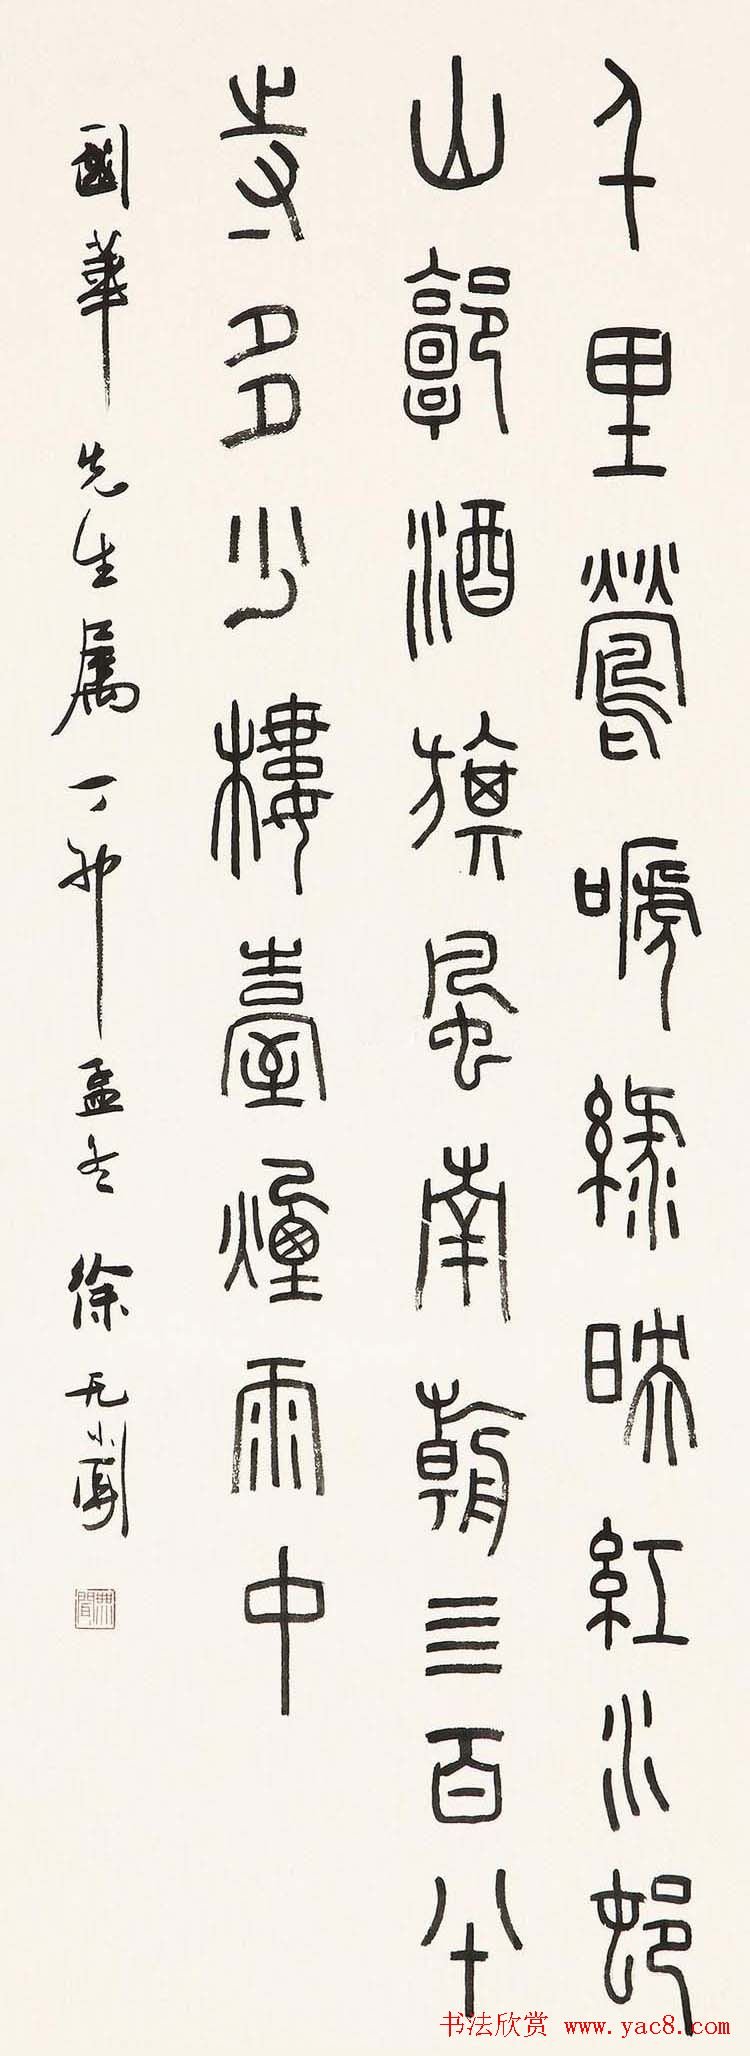 千里鶯嗁綠映紅水邨
山郭酒旗風南朝亖百八十
寺多少樓臺煙雨中
國華先生属丁卯孟冬徐无聞
無聞
书法欣赏 www.yac8.com